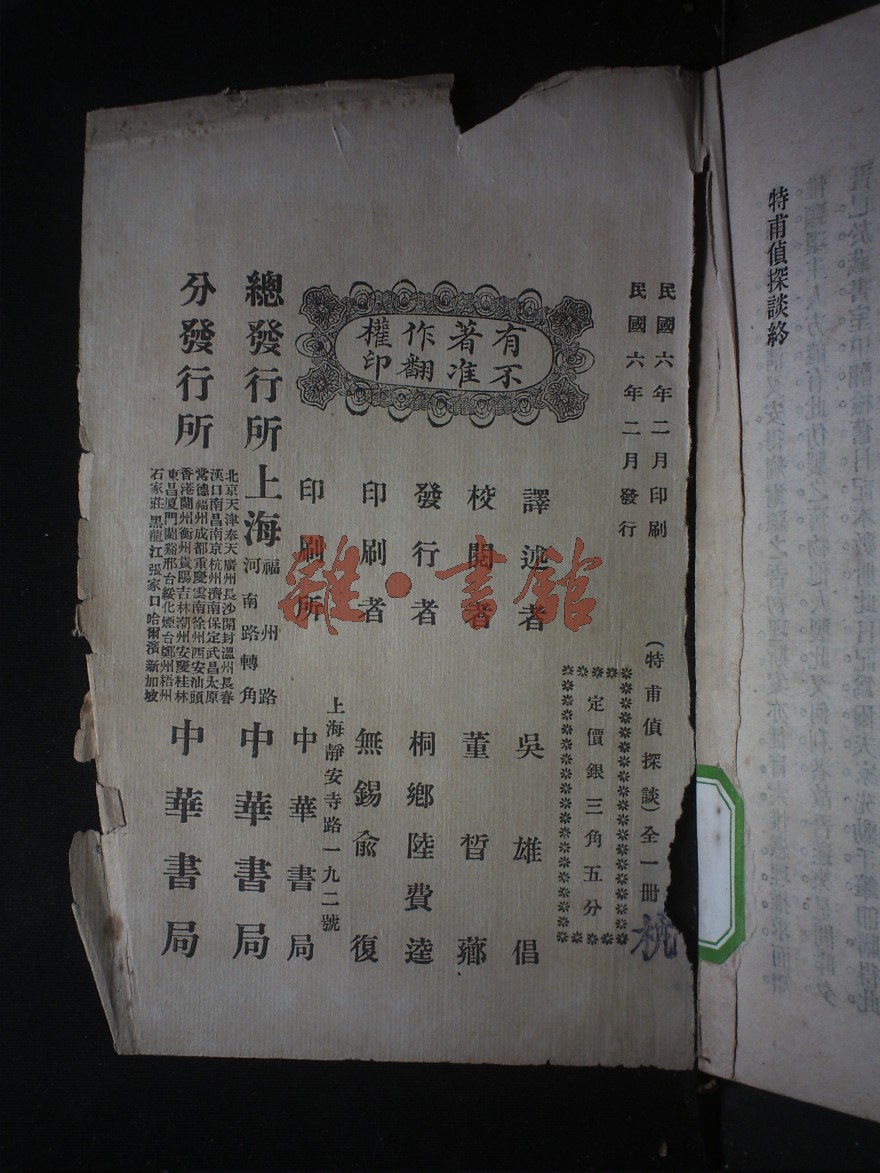 特甫偵探談終
民國六年二月印刷
民國六年二月發行
有著作權
不准翻印
(特甫偵探談)全一冊
定價銀三角五分
譯述者 吳雄倡
校閱者 董晳薌
發行者 桐鄉陸費逵
印刷者 無錫俞復
上海靜安寺路一九二號
印刷所 中華書局
總發行所 上海 福州路
河南路轉角 中華書局
分發行所
北京天津奉天廣州長沙開封溫州長春
漢口南昌南京杭州濟南保定武昌太原
常德福州成都重慶雲南徐州西安汕頭
香港蘭州衡州貴陽吉林潮州安慶桂林
東昌厦門蘭谿邢台綏化煙台鄭州梧州
石家莊黑龍江張家口哈爾濱新加坡
中華書局
雜·書館